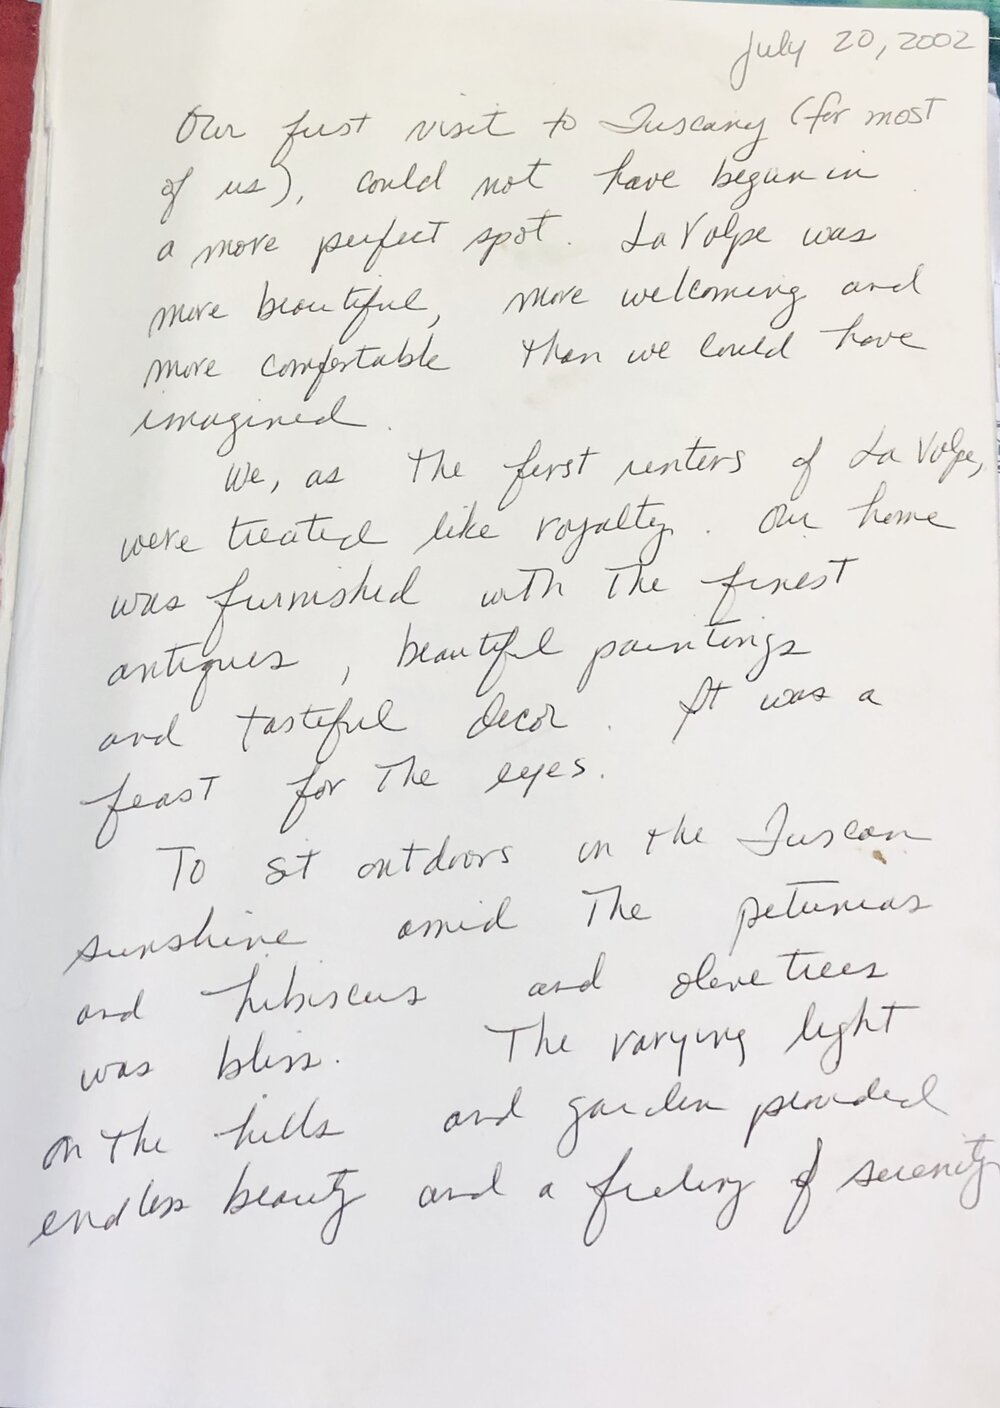 July 20, 2002
Our first visit to Tuscany (for most
of us), could not have begun in
a more perfect spot. La Volpe was
more beautiful, more welcoming and
more comfortable than we could have
imagined.
We, as the first renters of La Volpe,
were treated like royalty. Our home
was furnished with the finest
antiques, beautiful paintings
and tasteful decor. It was a
feast for the eyes.
To sit outdoors in the Tuscan
sunshine amid the petunias
and hibiscus and olive trees
was bliss. The varying light
on the hills and garden provided
endless beauty and a feeling of serenity